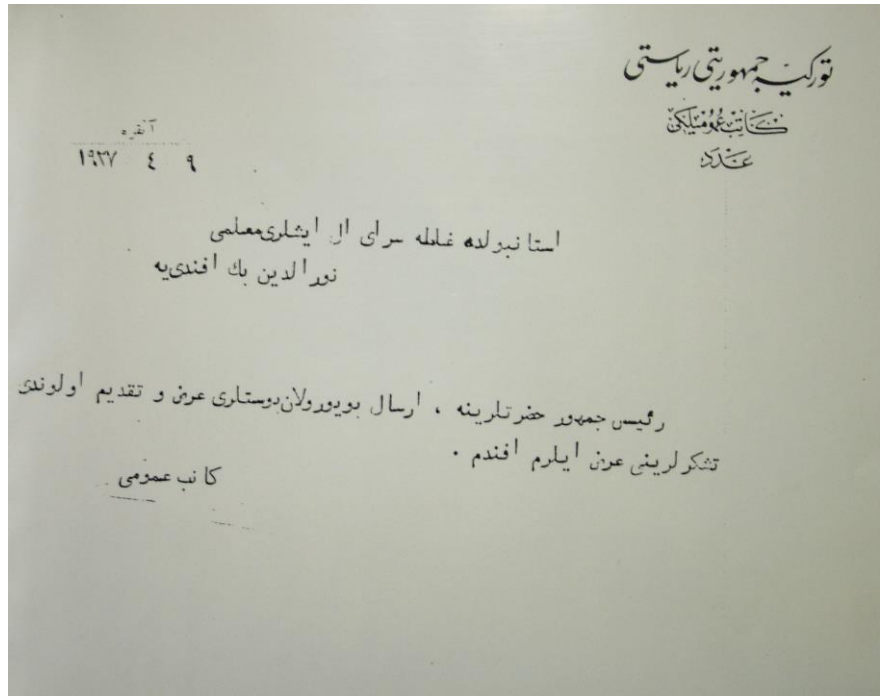 توركیه جمهوریتی ریاستی
كاتب عمومیلكی
عدد
آنقره
٩ ٤ ١٩٢٧
استانبولده غلطه سرای ال ایشلری معلمی
نورالدین بك افندی‌یه
رئیس جمهور حضرتلرینه ، ارسال بویورولان دوستلری عرض و تقدیم اولوندی
تشكرلرینی عرض ایلرم افندم .
كاتب عمومی